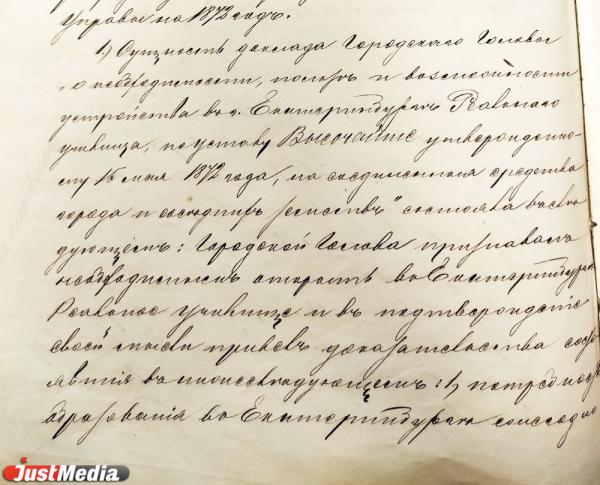 Управою на 1872 годъ.
1) Сущность доклада Городскаго Головы
„о необходимости, пользѣ и возможности
устройства въ г. Екатеринбургѣ Реальнаго
училища, по уставу Высочайше утвержденно-
му 15 мая 1872 года, на соединенныя средства
города и сосѣднихъ земствъ" состояла въ слѣ-
дующемъ: Городской Голова признавалъ
необходимымъ открыть въ Екатеринбургѣ
Реальное училище и въ подтвержденіе
своей мысли привелъ доказательства состо-
явшія въ нижеслѣдующемъ: 1) потребность
образованія въ Екатеринбургѣ
JustMedia